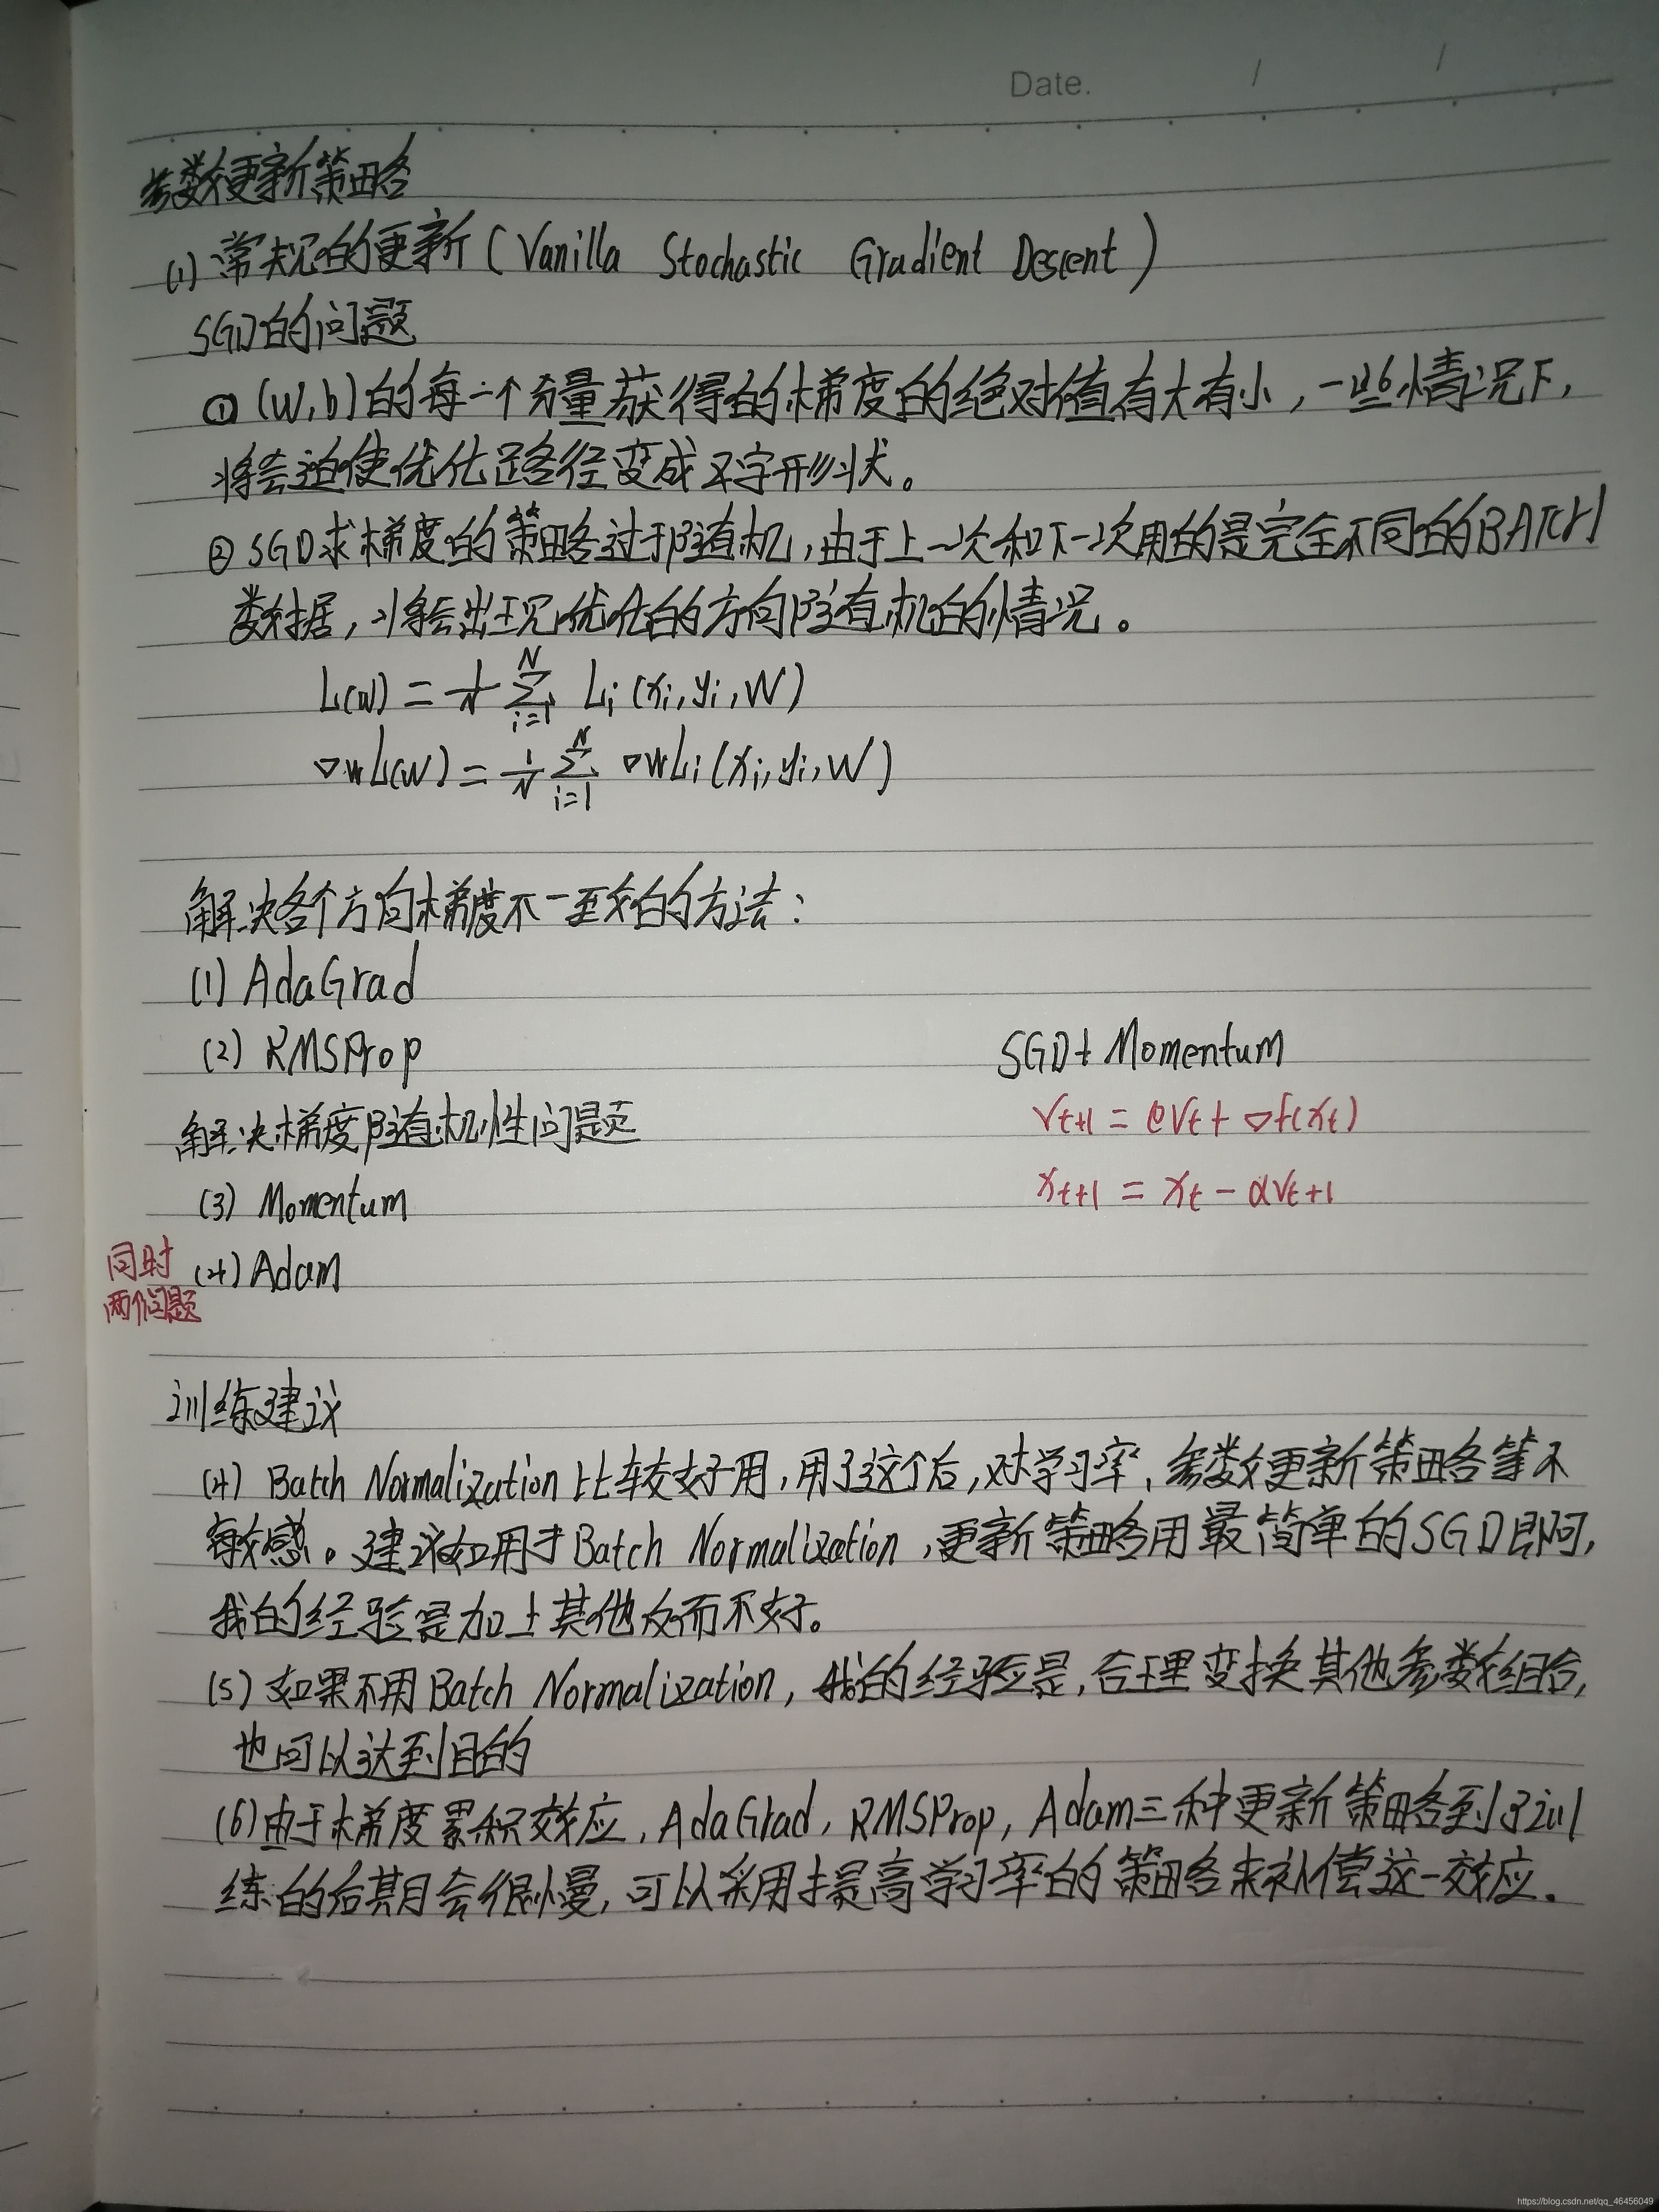 Date. / /
参数更新策略
(1) 常规的更新(Vanilla Stochastic Gradient Descent)
SGD的问题
① (W,b)的每一个分量获得的梯度的绝对值有大有小,一些情况下,
将会迫使优化路径变成Z字形状。
② SGD求梯度的策略过于随机,由于上一次和下一次用的是完全不同的BATCH
数据,将会出现优化的方向随机的情况。
L(W) = 1/N ∑_{i=1}^{N} Li(xi,yi,W)
∇wL(W) = 1/N ∑_{i=1}^{N} ∇wLi(xi,yi,W)
解决各个方向梯度不一致的方法:
(1) AdaGrad
(2) RMSProp
SGD+Momentum
Vt+1 = ρVt + ∇f(xt)
xt+1 = xt - αVt+1
解决梯度随机性问题
(3) Momentum
同时
两个问题
(4) Adam
训练建议
(4) Batch Normalization比较好用,用了这个后,对学习率、参数更新策略等不
敏感。建议如用于Batch Normalization,更新策略用最简单的SGD即可,
我的经验是加上其他反而不好。
(5) 如果不用Batch Normalization,我的经验是,合理变换其他参数组合,
也可以达到目的
(6)由于梯度累积效应,AdaGrad,RMSProp,Adam三种更新策略到了训
练的后期会很慢,可以采用提高学习率的策略来补偿这一效应.
https://blog.csdn.net/qq_46456049